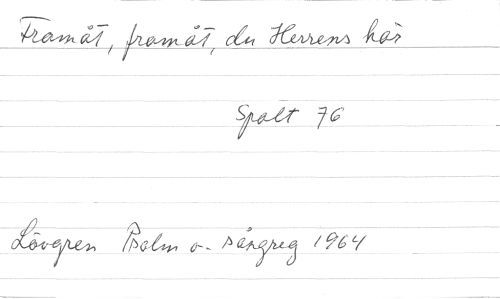 Framåt, framåt, du Herrens här
Spalt 76
Lövgren Psalm o- sångreg 1964